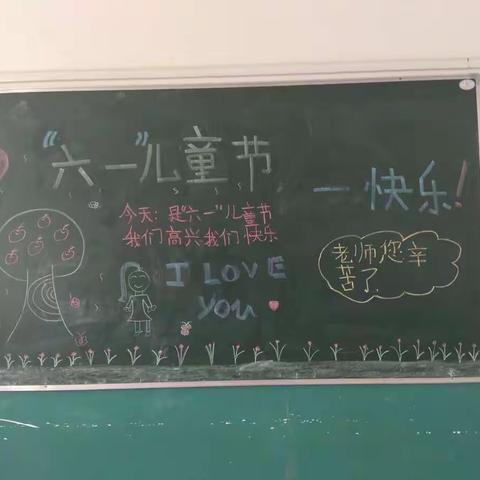 “六一”儿童节
一快乐！
今天：是“六一”儿童节
我们高兴我们快乐
I LOVE
YOU
老师您辛
苦了